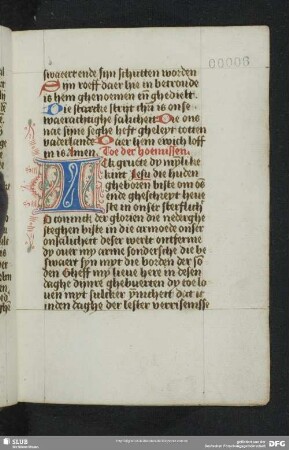 00006
swaert ende syn schutten worden
Syn roeff daer hie in betroude
is hem ghenomen en ghedielt
Die starcke strijt is onse
waerachtighe salicheit Die ons
nae sinre seghe heft gheleyt totten
vaderlande Daer hem ewich loff
in is Amen Toe der hoemissen
Ick gruete dy mylike
kint Jesu die huden
gheboren biste om ons
ende ghescreyt heues
te in onser sterflich
Coninck der glorien die nederghe
steghen biste in die armoede onser
onsalicheit deser werlt ontferme
dy ouer my arme sondersche die be
swaert syn myt die borden der son
den Gheff my lieue here in desen
daghe dynre ghebuerten dy toe lo
uen myt sulcker ynnicheit dat ic
in den daghe der lester verrisenisse
SLUB
Wir führen Wissen.
DFG